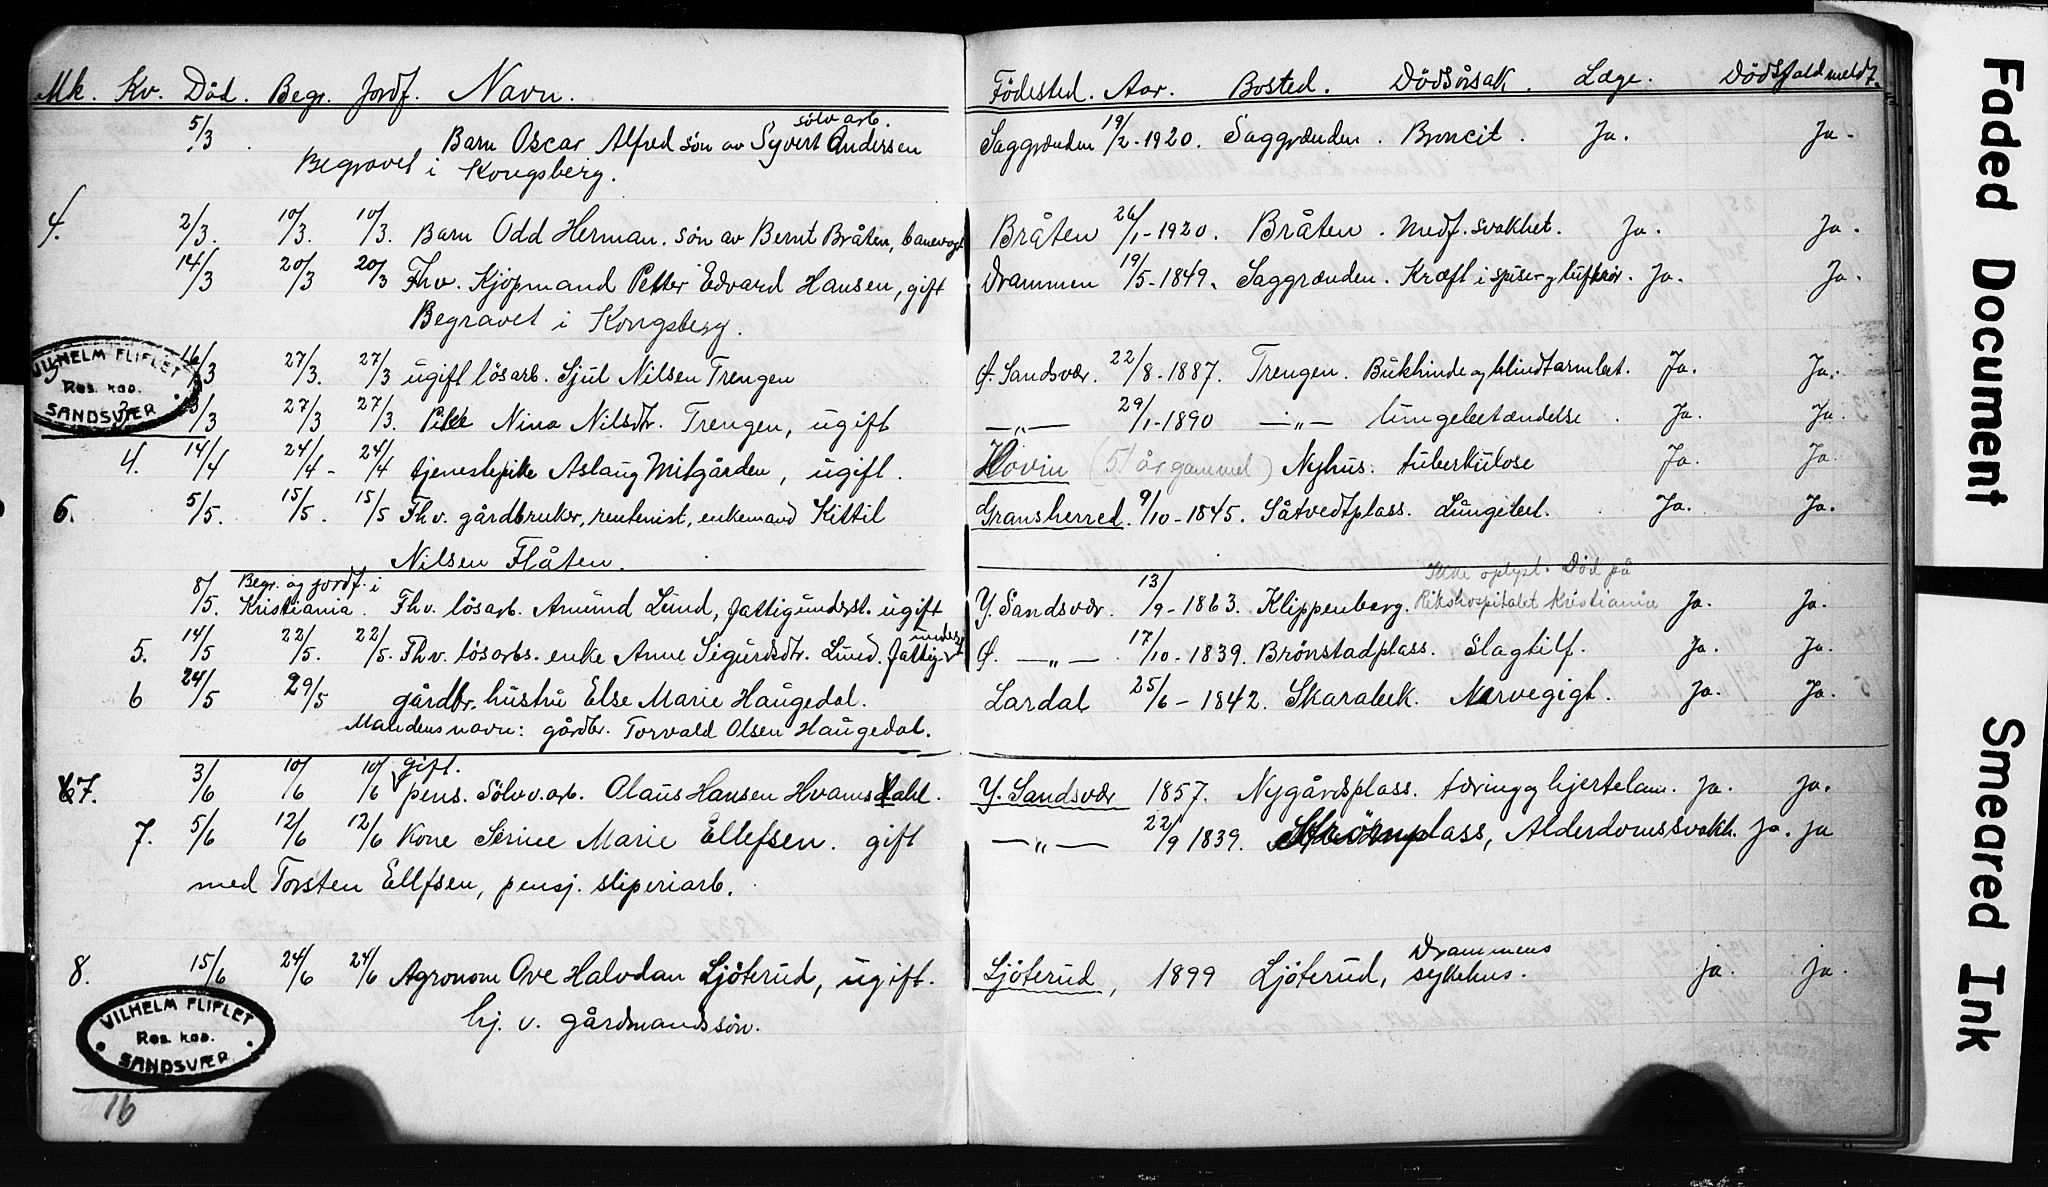 Mk. Kv. Död. Begr. Jordf. Navn. Födested. Aar. Bosted. Dödsårsak. Læge. Dödsfald meldt.
sølv arb.
5/3 Barn Oscar Alfred søn av Syvert Andersen Saggrænden 19/2-1920. Saggrænden. Broncit. Ja. Ja.
Begravet i Kongsberg.
4. 2/3. 10/3. 10/3. Barn Odd Herman. søn av Bernt Bråten, banevogt Bråten 26/1-1920. Bråten. Medf. svakhet. Ja. Ja.
14/3 20/3 20/3 Fhv. Kjøpmand Petter Edvard Hansen, gift Drammen 19/5-1849. Saggrænden. Kræft i spiser og luftrör. Ja. Ja.
Begravet i Kongsberg.
16/3 27/3. 27/3 ugift lösarb. Sjul Nilsen Trengen Ø. Sandsvær. 22/8-1887. Trengen. Bukhinde og blindtarmbet. Ja. Ja.
3 /3 27/3 27/3. Pike Nina Nilsdtr. Trengen, ugift —„— 29/1-1890 —„— Lungebetændelse. Ja. Ja.
4. 14/4 24/4- 24/4 tjenestepike Aslaug Mitgården, ugift. Hovin (51 år gammel) Nyhus. tuberkulose Ja. Ja.
6. 5/5. 15/5. 15/5 Fhv. gårdbruker, rentenist, enkemand Kittil Gransherred. 9/10-1845. Såtvedtplass. Lungebet. Ja. Ja.
Nilsen Flåten.
Begr. og jordf. i Ikke oplyst. Död på
8/5. Kristiania. Fhv. lösarb. Amund Lund, fattigunderst. ugift Y. Sandsvær. 13/9-1863. Klippenberg. Rikshospitalet Kristiania Ja. Ja.
5. 14/5 22/5. 22/5. Fhv. lösarbs. enke Anne Sigurdsdtr. Lund. fattigunderst Ø. —„— 17/10-1839. Brönstadplass. Slagtilf. Ja. Ja.
6 24/5 29/5 gårdbr. hustru Else Marie Haugedal. Lardal 25/6-1842. Skarabek. Nervegigt. Ja. Ja.
Mandens navn: gårdbr. Torvald Olsen Haugedal.
gift.
7. 3/6 10/6 10/6 pens. Sölvv.arb. Olaus Hansen Hvamsdahl. Y. Sandsvær 1857. Nygårdsplass. tæring og hjertelam. Ja. Ja.
7. 5/6 12/6 12/6 Kone Serine Marie Ellefsen. gift —„— 22/9 1839. Skrömplass, Alderdomssvakh. ja. ja
med Torsten Ellfsen, pensj. sliperiarb.
8. 15/6 24/6 24/6 Agronom Ove Halvdan Ljöterud, ugift. Ljöterud, 1899 Ljöterud, Drammens sykehus. ja. ja.
hj. v. gårdmandssön.
16
VILHELM FLIFLET
Res. kap.
SANDSVÆR
VILHELM FLIFLET
Res. kap.
SANDSVÆR
Faded Document
Smeared Ink